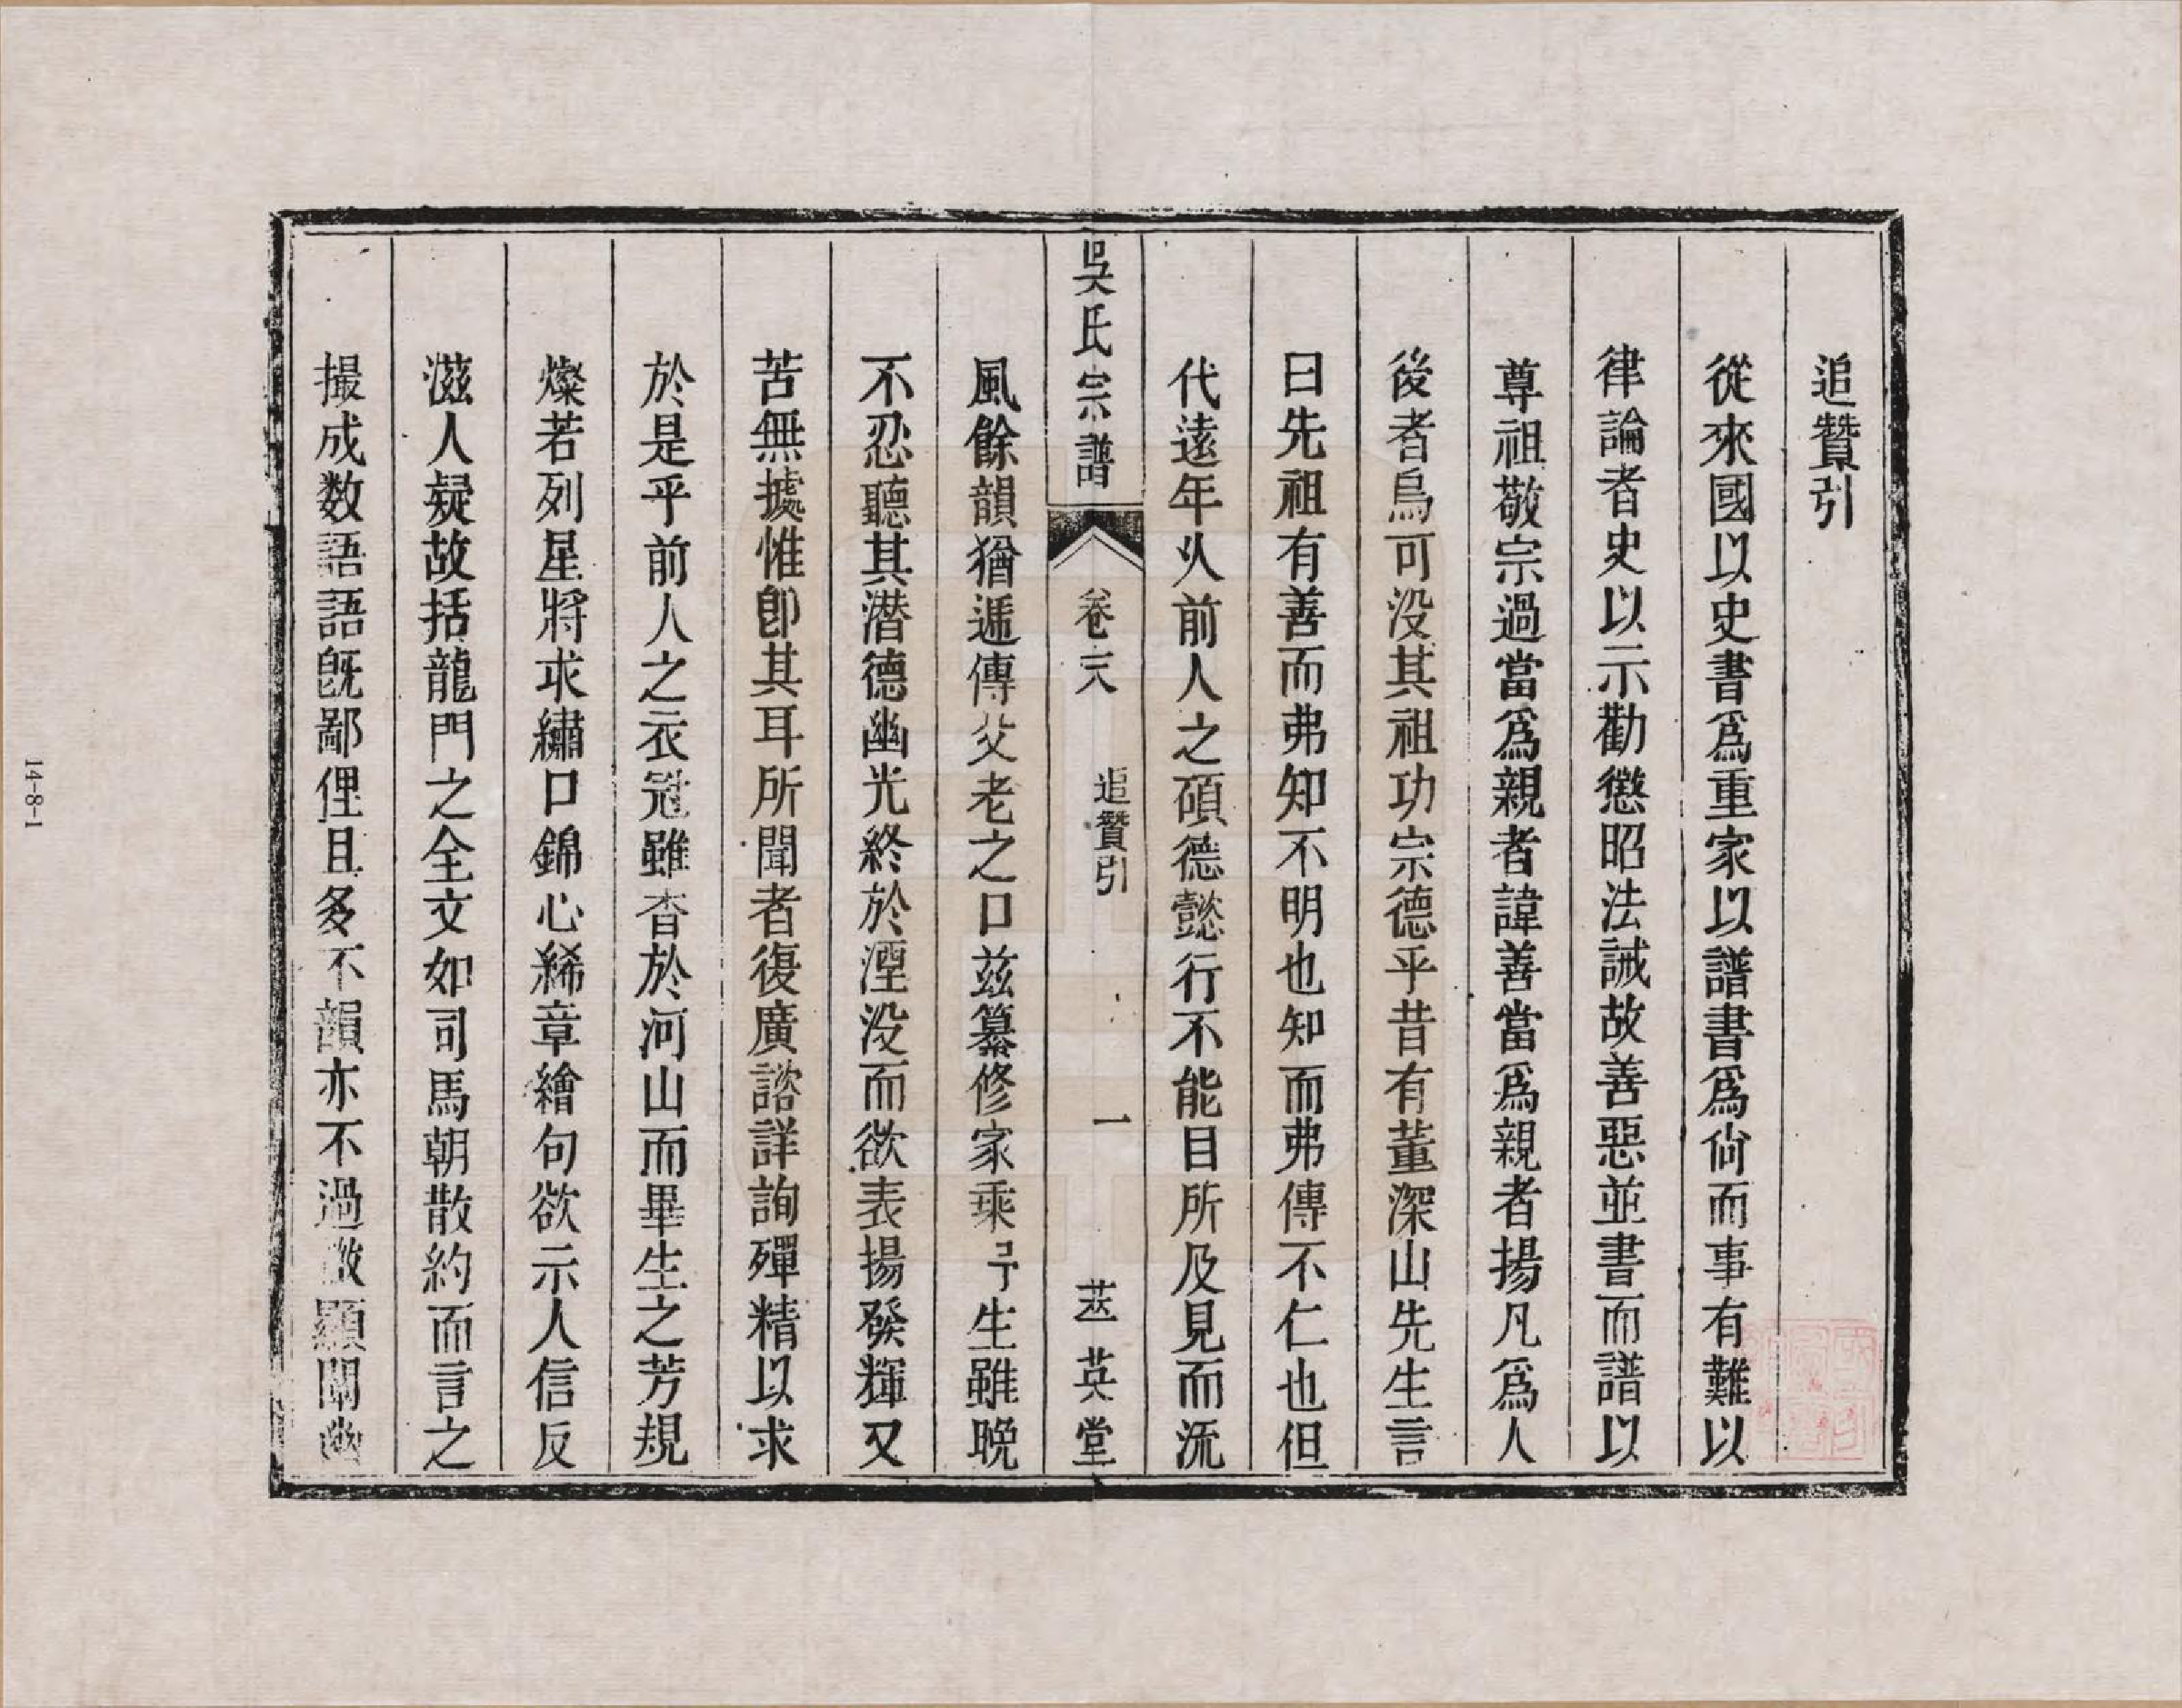 追贊引
從來國以史書爲重家以譜書爲尙而事有難以
律論者史以示勸懲昭法誡故善惡並書而譜以
尊祖敬宗過當爲親者諱善當爲親者揚凡爲人
後者烏可没其祖功宗德乎昔有董深山先生言
曰先祖有善而弗知不明也知而弗傳不仁也但
代遠年火前人之碩德懿行不能目所及見而流
吳氏宗譜
卷
追贊引
一
英堂
風餘韻猶遞傳父老之口茲纂修家乘予生雖晩
不忍聽其潜德幽光終於湮没而欲表揚發輝又
苦無據惟卽其耳所聞者復廣諮詳詢殫精以求
於是乎前人之衣冠雖杳於河山而畢生之芳規
燦若列星將求繡口錦心絺章繪句欲示人信反
滋人疑故括龍門之全文如司馬朝散約而言之
撮成数語語旣鄙俚且多不韻亦不過微顯闡幽
14-8-1